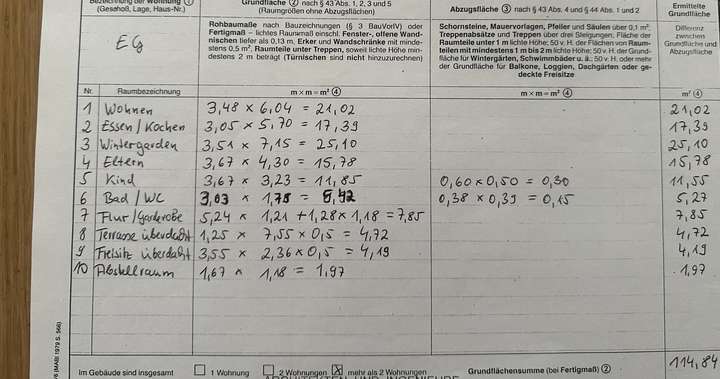 Bezeichnung der Wohnung ① Grundfläche ② nach § 43 Abs. 1, 2, 3 und 5 Abzugsfläche ③ nach § 43 Abs. 4 und § 44 Abs. 1 und 2 Ermittelte Grundfläche
(Geschoß, Lage, Haus-Nr.) (Raumgrößen ohne Abzugsflächen)
EG
Rohbaumaße nach Bauzeichnungen (§ 3 BauVorlV) oder
Fertigmaß – lichtes Raumsmaß einschl. Fenster-, offene Wand-
nischen liefer als 0,13 m, Erker und Wandschränke mit minde-
stens 0,5 m², Raumteile unter Treppen, soweit lichte Höhe min-
destens 2 m beträgt (Türnischen sind nicht hinzuzurechnen)
Schornsteine, Mauervorlagen, Pfeiler und Säulen über 0,1 m²,
Treppenabsätze und Treppen über drei Steigungen, Fläche der
Raumteile unter 1 m lichte Höhe; 50 v. H. der Flächen von Raum-
teilen mit mindestens 1 m bis 2 m lichte Höhe; 50 v. H. der Grund-
fläche für Wintergärten, Schwimmbäder u. ä.; 50 v. H. oder mehr
der Grundfläche für Balkone, Loggien, Dachgärten oder ge-
deckte Freisitze
Differenz
zwischen
Grundfläche und
Abzugsfläche
Nr. Raumbezeichnung m × m = m² ④ m × m = m² ④ m² ④
1 Wohnen 3,48 × 6,04 = 21,02 21,02
2 Essen / Kochen 3,05 × 5,70 = 17,39 17,39
3 Wintergarden 3,51 × 7,15 = 25,10 25,10
4 Eltern 3,67 × 4,30 = 15,78 15,78
5 Kind 3,67 × 3,23 = 11,85 0,60 × 0,50 = 0,30 11,55
6 Bad / WC 3,03 × 1,78 = 5,42 0,38 × 0,39 = 0,15 5,27
7 Flur / Garderobe 5,24 × 1,21 + 1,28 × 1,18 = 7,85 7,85
8 Terrasse überdacht 1,25 × 7,55 × 0,5 = 4,72 4,72
9 Freisitz überdacht 3,55 × 2,36 × 0,5 = 4,19 4,19
10 Abstellraum 1,67 × 1,18 = 1,97 1,97
Im Gebäude sind insgesamt 1 Wohnung 2 Wohnungen x mehr als 2 Wohnungen Grundflächensumme (bei Fertigmaß) ② 114,84
ARCHITEKTEN UND INGENIEURE
(MABl 1979 S. 568)